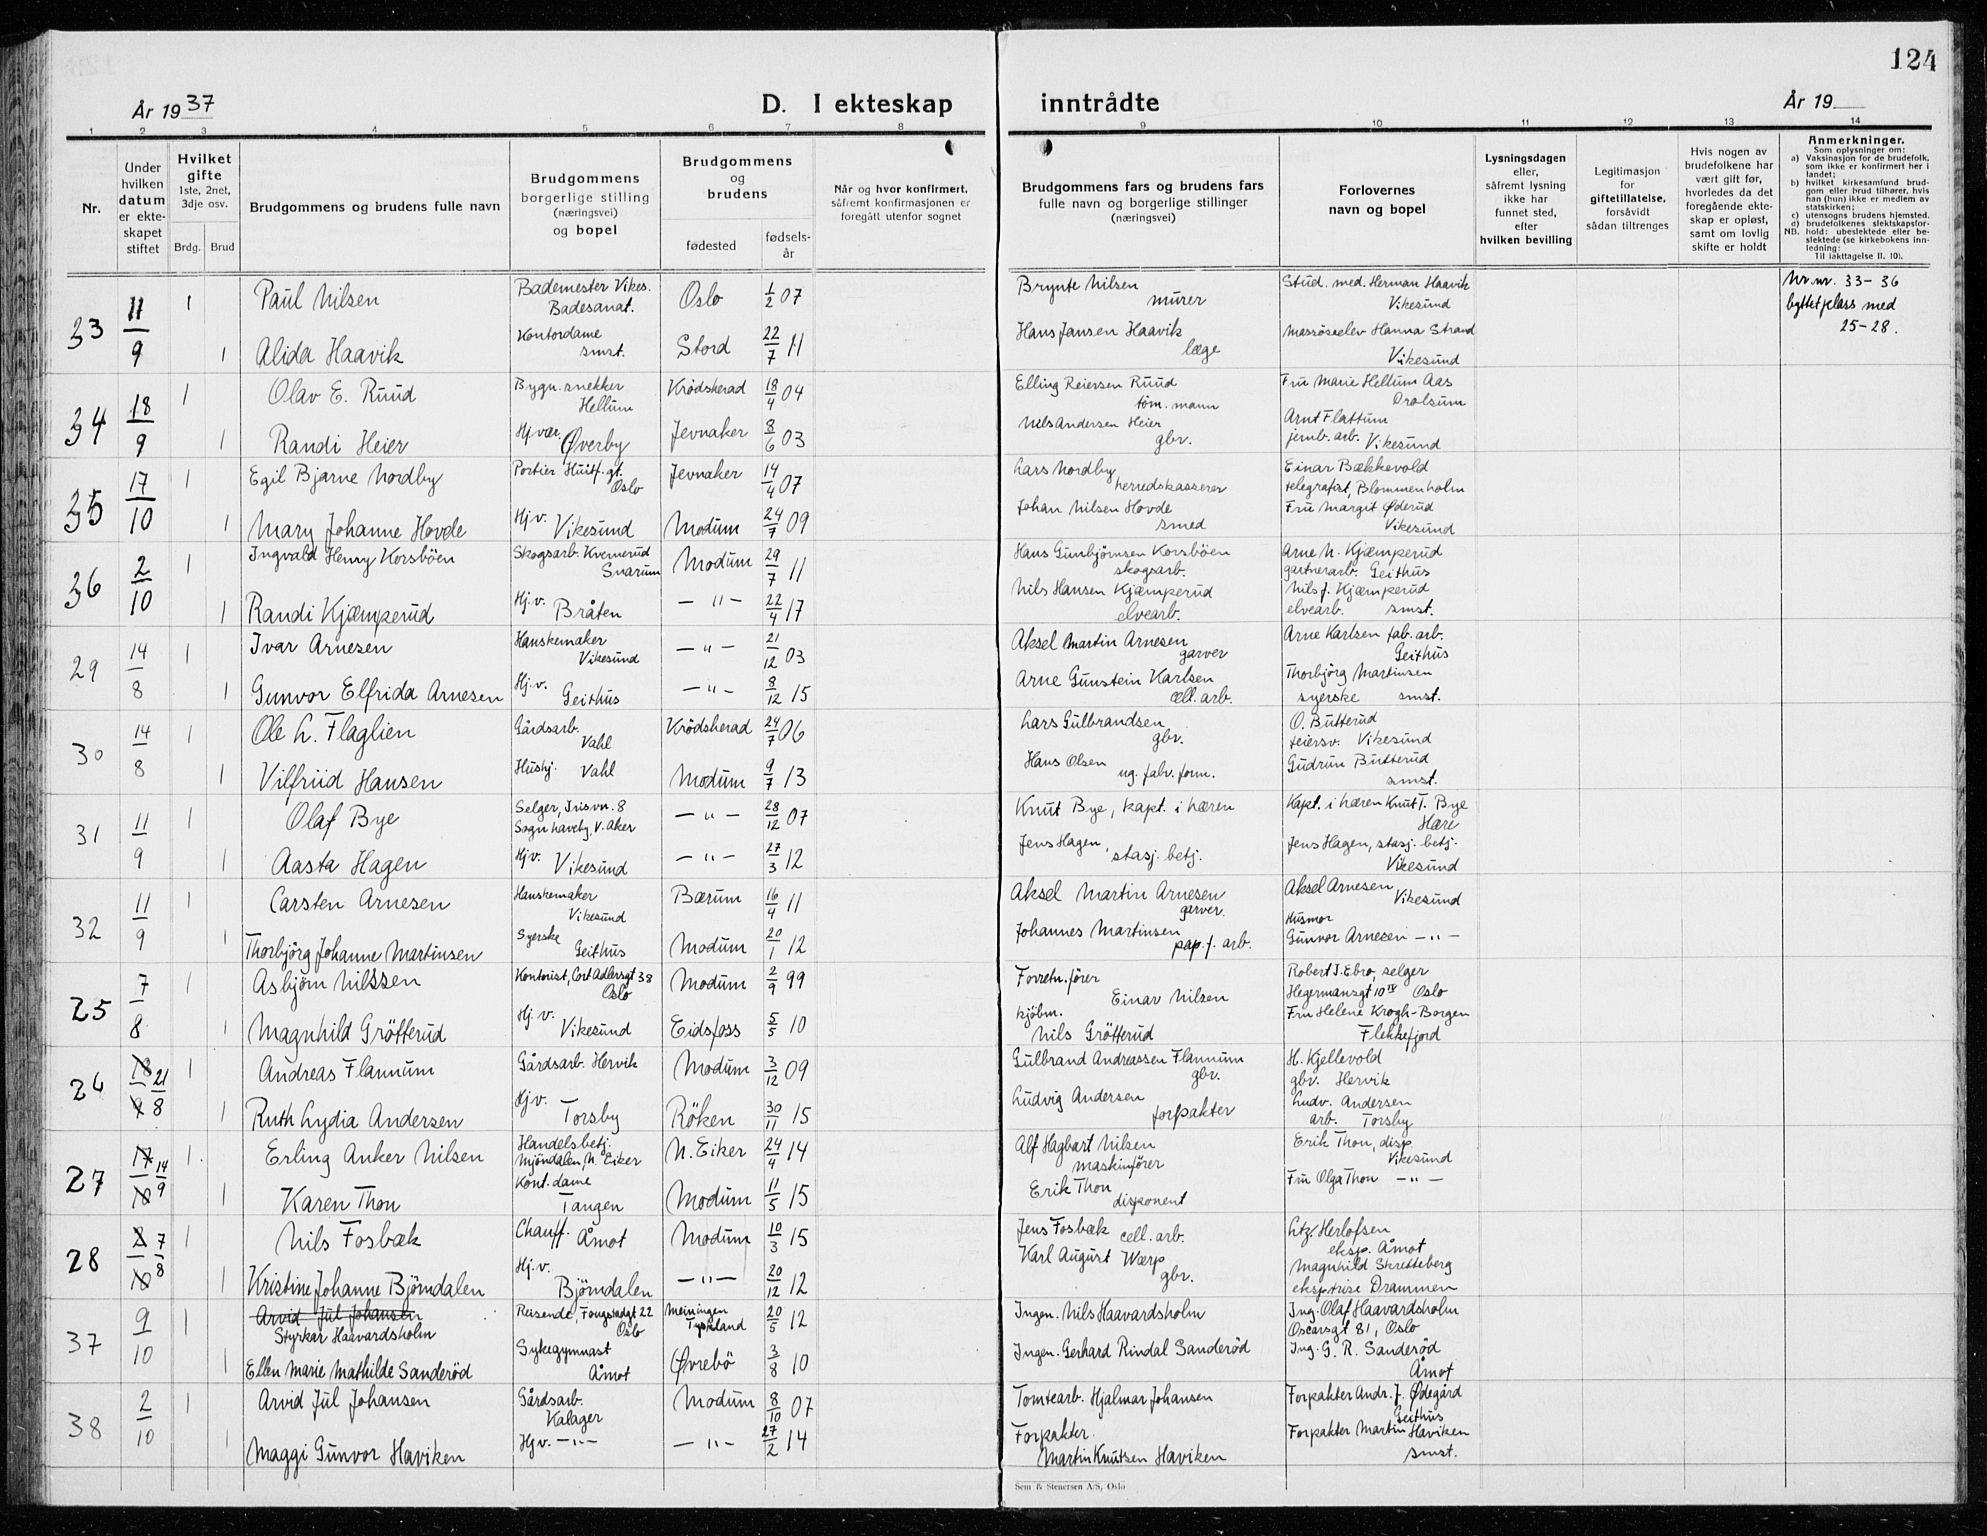 124
År 1937
D. I ekteskap inntrådte
År 19
1 2 3 4 5 6 7 8 9 10 11 12 13 14
Nr.
Under hvilken datum er ekteskapet stiftet
Hvilket gifte
1ste, 2net, 3dje osv.
Brdg. Brud
Brudgommens og brudens fulle navn
Brudgommens borgerlige stilling (næringsvei) og bopel
Brudgommens og brudens
fødested
fødselsår
Når og hvor konfirmert, såfremt konfirmasjonen er foregått utenfor sognet
Brudgommens fars og brudens fars fulle navn og borgerlige stillinger (næringsvei)
Forlovernes navn og bopel
Lysningsdagen eller, såfremt lysning ikke har funnet sted, efter hvilken bevilling
Legitimasjon for giftetillatelse, forsåvidt sådan tiltrenges
Hvis nogen av brudefolkene har vært gift før, hvorledes da det foregående ekteskap er opløst, samt om lovlig skifte er holdt
Anmerkninger.
Som oplysninger om:
a) Vaksinasjon for de brudefolk, som ikke er konfirmert her i landet;
b) hvilket kirkesamfund brudgom eller brud tilhører, hvis han (hun) ikke er medlem av statskirken;
c) utensogns brudens hjemsted.
d) brudefolkenes slektskapsforhold: ubeslektede eller beslektede (se kirkebokens innledning:
NB. Til iakttagelse II. 10).
33 11/9 1 Paul Nilsen Bademester Vikes. Badesanat. Oslo 1/2 07 Brynte Nilsen murer Stud. med. Herman Haavik Vikesund Nr. nr. 33-36 byttet plass med 25-28.
1 Alida Haavik Kontordame smst. Stord 22/7 11 Hans Jansen Haavik læge Massøseelev Hanna Strand Vikesund
34 18/9 1 Olav E. Ruud Bygn. snekker Hellum Krødsherad 18/4 04 Elling Reiersen Ruud töm. mann Fru Marie Hellum Aas Drolsum
1 Randi Heier Hj.vær. Øverby Jevnaker 8/6 03 Nils Andersen Heier gbr. Arnt Flattum jernb. arb. Vikesund
35 17/10 1 Egil Bjarne Nordby Portier Huitf. gt. Oslo Jevnaker 14/4 07 Lars Nordby herredskasserer Einar Bækkevold telegrafist, Blommenholm
1 Mary Johanne Hovde Hj.v. Vikesund Modum 24/7 09 Johan Nilsen Hovde smed Fru Margit Øderud Vikesund
36 2/10 1 Ingvald Henry Korsböen Skogsarb. Kvernerud Snarum Modum 29/7 11 Hans Gunbjörnsen Korsböen skogsarb. Arne N. Kjæmperud gartnerarb. Geithus
1 Randi Kjæmperud Hj.v. Bråten - " - 22/4 17 Nils Hansen Kjæmperud elvearb. Nils J. Kjæmperud elvearb. smst.
29 14/8 1 Ivar Arnesen Hanskemaker Vikesund - " - 21/12 03 Aksel Martin Arnesen garver Arne Karlsen fab. arb. Geithus
1 Gunvor Elfrida Arnesen Hj.v. Geithus - " - 8/12 15 Arne Gunstein Karlsen cell. arb. Thorbjörg Martinsen syerske smst.
30 14/8 1 Ole L. Flaglien Gårdsarb. Vahl Krødsherad 24/7 06 Lars Gulbrandsen gbr. O. Butterud feiersv. Vikesund
1 Vilfriid Hansen Hushj. Vahl Modum 9/7 13 Hans Olsen ug. fabr. form. Gudrun Butterud smst.
31 11/9 1 Olaf Bye Selger, Irisvn. 8 Sogn haveby, V. Aker - " - 28/12 07 Knut Bye, kapt. i hæren Kapt. i hæren Knut T. Bye Hære
1 Aasta Hagen Hj.v. Vikesund - " - 27/3 12 Jens Hagen, stasj. betj. Jens Hagen, stasj. betj. Vikesund
32 11/9 1 Carsten Arnesen Hanskemaker Vikesund Bærum 16/4 11 Aksel Martin Arnesen garver. Aksel Arnesen Vikesund
1 Thorbjörg Johanne Martinsen Syerske Geithus Modum 20/1 12 Johannes Martinsen pap. f. arb. Husmor Gunvor Arnesen - " -
25 7/8 1 Asbjörn Nilssen Kontorist, Cort Adlersgt 38 Oslo Modum 2/9 99 Forretn. förer Einar Nilsen Robert J. Ebro, selger Hegermansgt 10 IV Oslo
1 Magnhild Grötterud Hj.v. Vikesund Eidsfoss 5/5 10 kjöbm. Nils Grötterud Fru Helene Krogh-Borgen Flekkefjord
26 18/9 21/8 1 Andreas Flannum Gårdsarb. Hervik Modum 3/12 09 Gulbrand Andreassen Flannum gbr. H. Kjellevold gbr. Hervik
1 Ruth Lydia Andersen Hj.v. Torsby Röken 30/11 15 Ludvig Andersen forpakter Ludv. Andersen arb. Torsby
27 17/10 14/9 1. Erling Anker Nilsen Handelsbetj. Mjöndalen, N. Eiker N. Eiker 24/4 14 Alf Hagbart Nilsen maskinförer Erik Thon, disp Vikesund
1 Karen Thon Kont. dame Tangen Modum 11/5 15 Erik Thon disponent Fru Olga Thon - " -
28 8/10 7/8 1 Nils Fosbæk Chauff. Åmot Modum 10/3 15 Jens Fosbæk cell. arb. Herlofsen eksp. Åmot
1 Kristine Johanne Björndalen Hj.v. Björndalen - " - 20/12 12 Karl August Wærp gbr. Magnhild Skretteberg ekspitrise Drammen
37 9/10 1 Arvid Jul Johansen Styrkar Haavardsholm Reisende, Fougstadgt 22 Oslo Meiningen Tyskland 20/5 12 Ingen. Nils Haavardsholm Ing. Olaf Haavardsholm Oscarsgt 81, Oslo
1 Ellen Marie Mathilde Sanderöd Sykegymnast Åmot Øvrebö 3/8 10 Ingen. Gerhard Rindal Sanderöd Ing. G. R. Sanderöd Åmot
38 2/10 1 Arvid Jul Johansen Gårdsarb. Kalager Modum 8/10 07 Tomtearb. Hjalmar Johansen Forpakter Andr. J. Ødegård Geithus
1 Maggi Gunvor Haviken Hj.v. - " - - " - 27/2 14 Forpakter. Martin Knutsen Haviken Forpakter Martin Haviken smst.
Sem & Stenersen A/S, Oslo